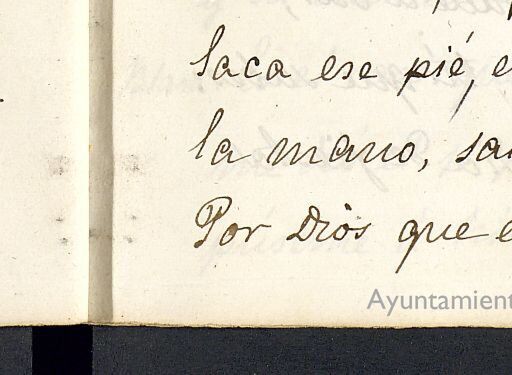 saca ese pié, e
la mano, sa
Por Dios que e
Ayuntamient